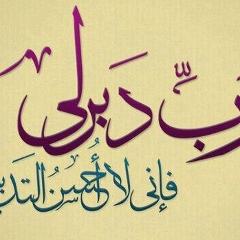 ربِّ دَبرلى
فإنى لا أُحسن التدب